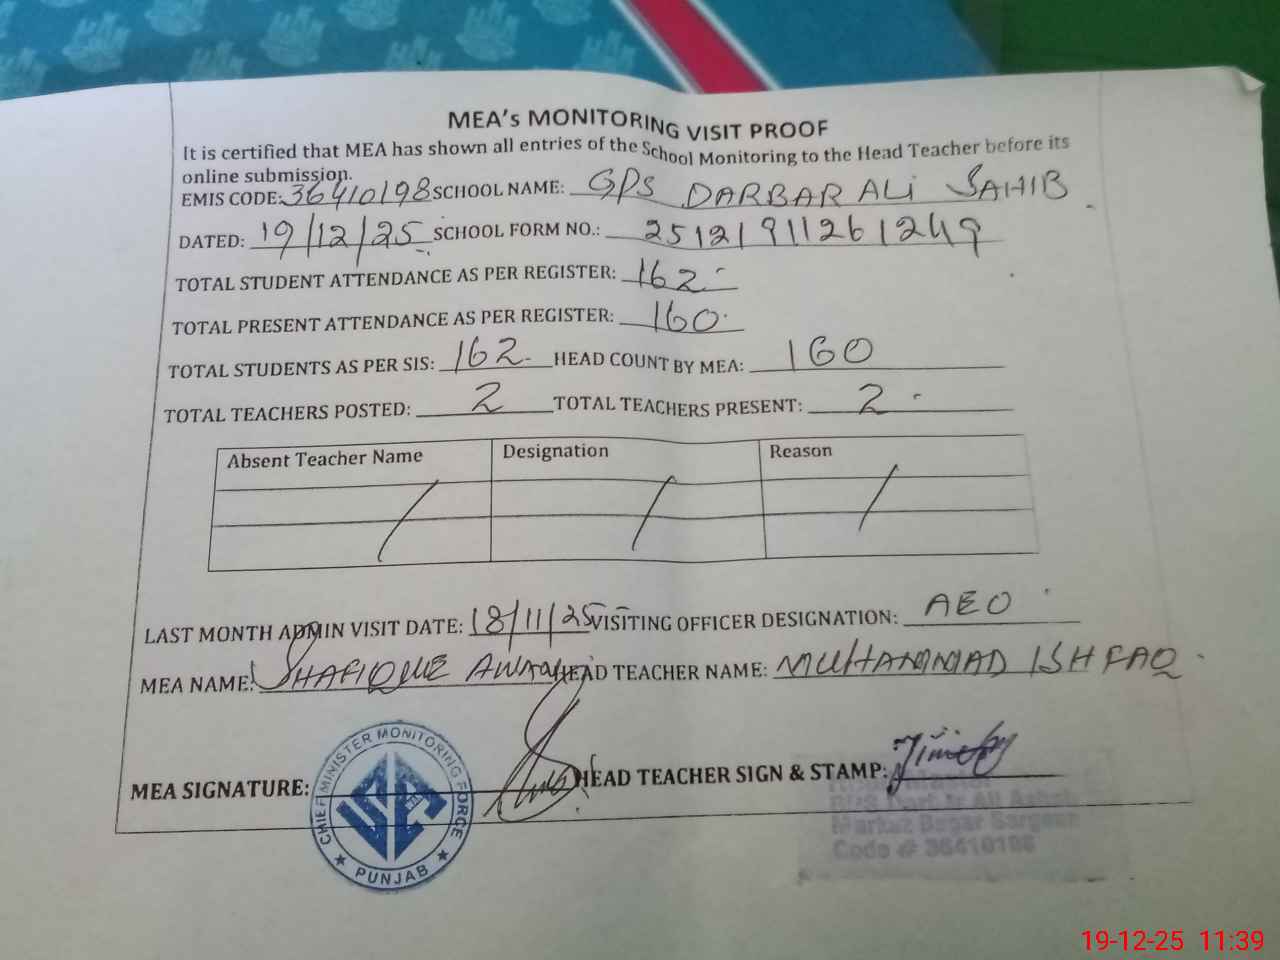 MEA's MONITORING VISIT PROOF
It is certified that MEA has shown all entries of the School Monitoring to the Head Teacher before its
online submission.
EMIS CODE: 36410198 SCHOOL NAME: GPS DARBAR ALI SAHIB
DATED: 19/12/25 SCHOOL FORM NO.: 2512191126 1249
TOTAL STUDENT ATTENDANCE AS PER REGISTER: 162
TOTAL PRESENT ATTENDANCE AS PER REGISTER: 160
TOTAL STUDENTS AS PER SIS: 162 HEAD COUNT BY MEA: 160
TOTAL TEACHERS POSTED: 2 TOTAL TEACHERS PRESENT: 2
Absent Teacher Name Designation Reason
LAST MONTH ADMIN VISIT DATE: 18/11/25 VISITING OFFICER DESIGNATION: AEO
MEA NAME: SHAFIQUE AWAN HEAD TEACHER NAME: MUHAMMAD ISHFAQ
MEA SIGNATURE: HEAD TEACHER SIGN & STAMP:
CHIEF MINISTER MONITORING FORCE
PUNJAB
Code #
19-12-25 11:39